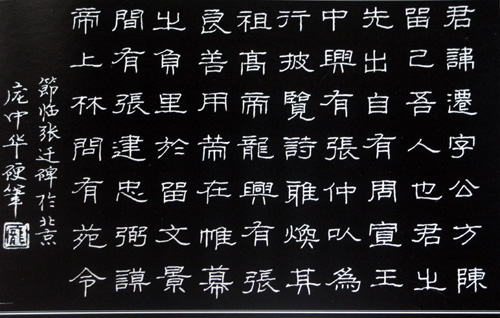 君諱遷字公方陳
留己吾人也君之
先出自有周宣王
中興有張仲以為
行披覽詩雅煥其
祖高帝龍興有張
良善用在帷幕
之負里於留文景
間有張建忠弼謨
帝上林問有苑令
節临张迁碑於北京
庞中华硬筆